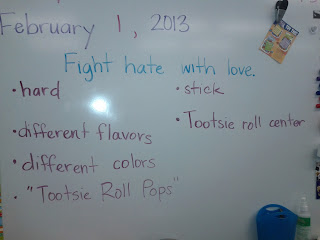 February 1, 2013
Fight hate with love.
• hard
• stick
• different flavors
• Tootsie roll center
• different colors
• "Tootsie Roll Pops"